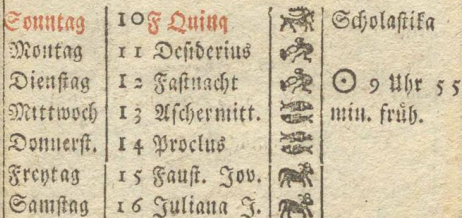 Sonntag 10 F Quinq Scholaſtika
Montag 11 Deſiderius
Dienſtag 12 Faſtnacht ☉ 9 Uhr 55
Mittwoch 13 Aſchermitt. min. früh.
Donnerſt. 14 Proclus
Freytag 15 Fauſt. Jov.
Samſtag 16 Juliana J.